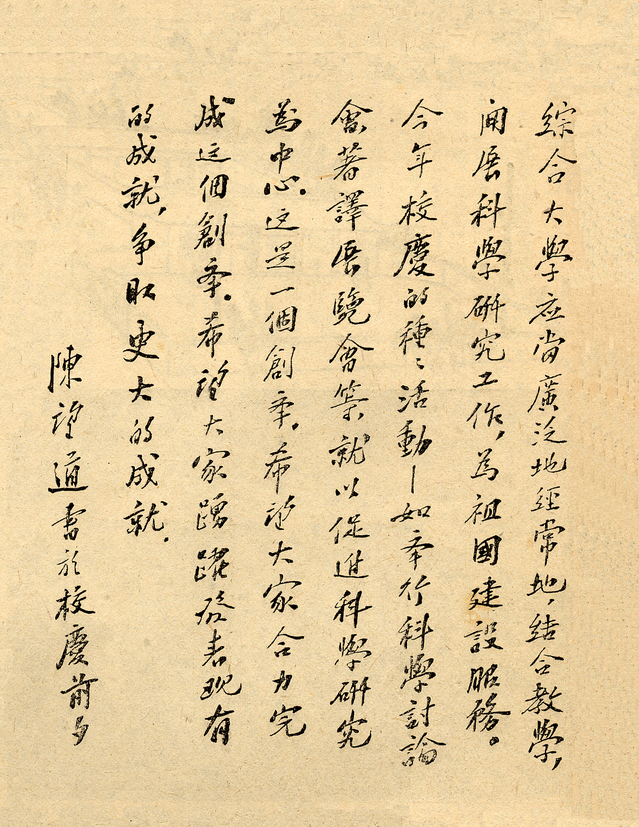 綜合大學应当廣泛地經常地，結合教學，
開展科學研究工作，為祖國建設服務。
今年校慶的種種活動—如举行科學討論
會，著譯展覽會等，就以促進科學研究
為中心。这是一個創举。希望大家合力完
成这個創举。希望大家踴躍發表现有
的成就，争取更大的成就。
陳望道書於校慶前夕